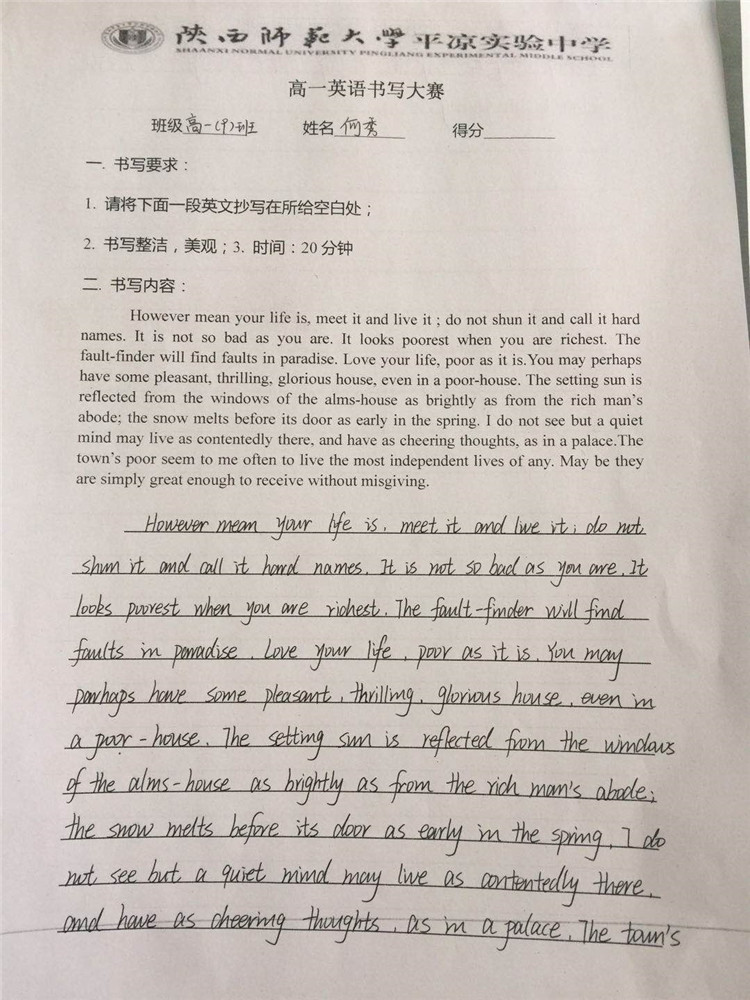 陕西师范大学平凉实验中学
SHAANXI NORMAL UNIVERSITY PINGLIANG EXPERIMENTAL MIDDLE SCHOOL
高一英语书写大赛
班级高一(9)班 姓名 何秀 得分
一. 书写要求：
1. 请将下面一段英文抄写在所给空白处；
2. 书写整洁，美观；3. 时间：20分钟
二. 书写内容：
However mean your life is, meet it and live it ; do not shun it and call it hard
names. It is not so bad as you are. It looks poorest when you are richest. The
fault-finder will find faults in paradise. Love your life, poor as it is.You may perhaps
have some pleasant, thrilling, glorious house, even in a poor-house. The setting sun is
reflected from the windows of the alms-house as brightly as from the rich man's
abode; the snow melts before its door as early in the spring. I do not see but a quiet
mind may live as contentedly there, and have as cheering thoughts, as in a palace.The
town's poor seem to me often to live the most independent lives of any. May be they
are simply great enough to receive without misgiving.
However mean your life is, meet it and live it; do not
shun it and call it hard names. It is not so bad as you are. It
looks poorest when you are richest. The fault-finder will find
faults in paradise. Love your life, poor as it is. You may
parhaps have some pleasant, thrilling, glorious house, even in
a poor-house. The setting sun is reflected from the windows
of the alms-house as brightly as from the rich man's abode;
the snow melts before its door as early in the spring. I do
not see but a quiet mind may live as contentedly there,
and have as cheering thoughts, as in a palace. The town's